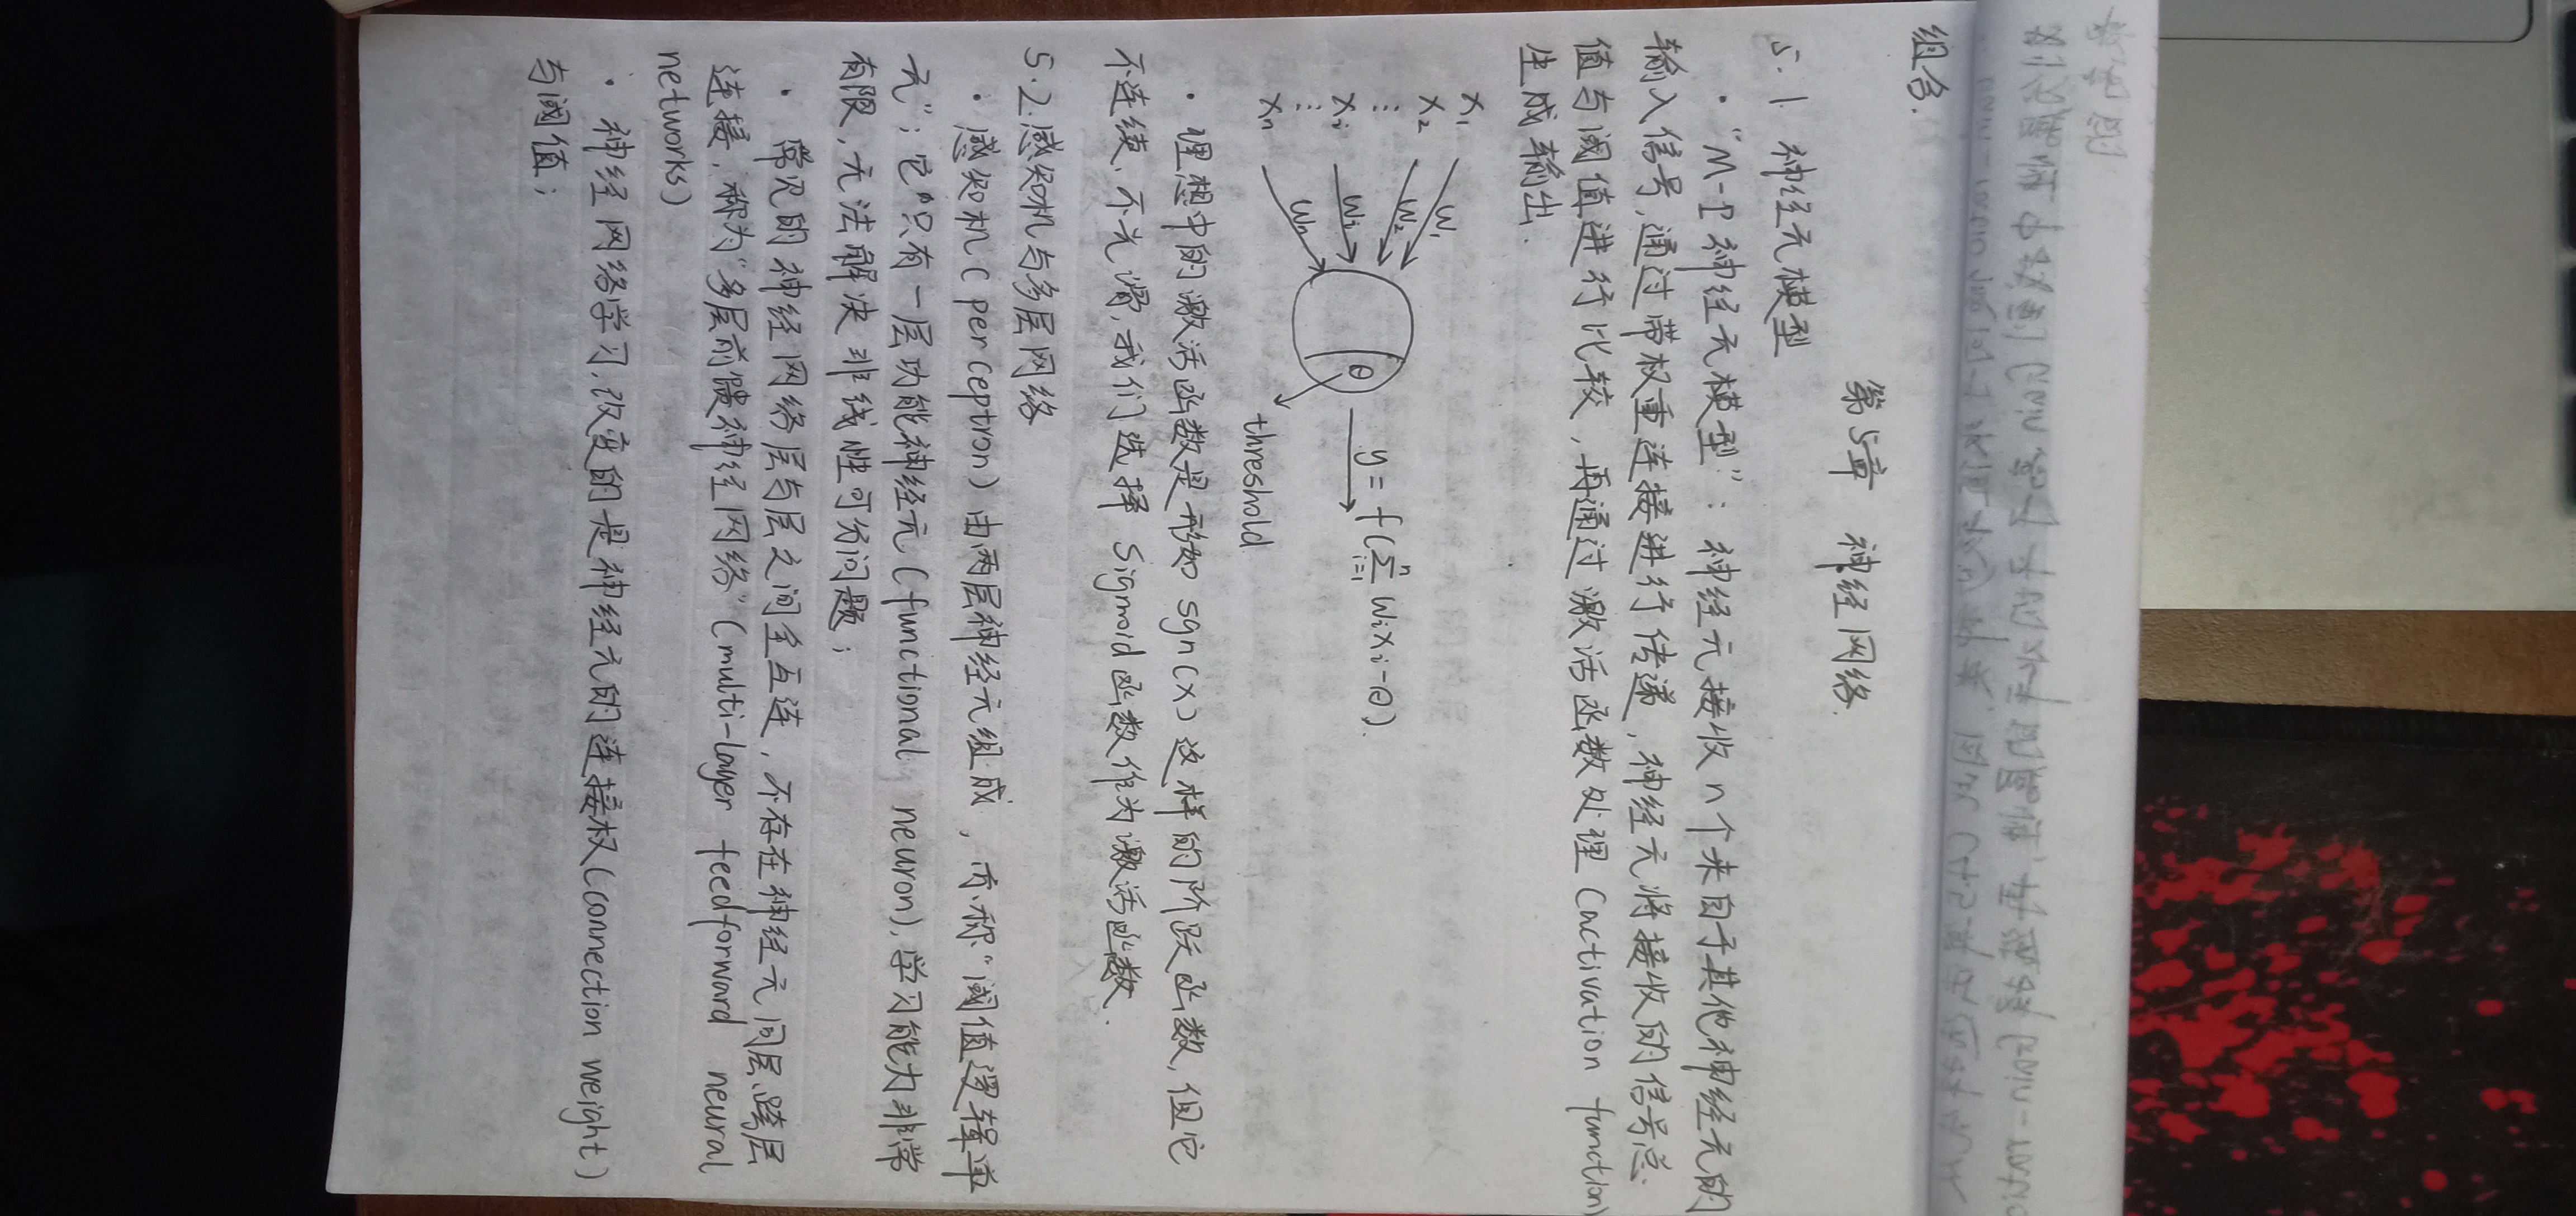 组合.
第5章 神经网络.
5.1 神经元模型
· “M-P神经元模型”: 神经元接收n个来自于其他神经元的
输入信号,通过带权重连接进行传递,神经元将接收的信号总
值与阈值进行比较,再通过激活函数处理(activation function)
生成输出.
x₁
x₂
⋮
xᵢ
⋮
xₙ
w₁
w₂
wᵢ
wₙ
θ
y = f(∑ⁿᵢ₌₁ wᵢxᵢ-θ).
threshold
· 理想中的激活函数是形如 sgn(x) 这样的阶跃函数,但它
不连续、不光滑,我们选择 Sigmoid函数作为激活函数.
5.2 感知机与多层网络
· 感知机(perceptron)由两层神经元组成,亦称“阈值逻辑单
元”;它只有一层功能神经元(functional neuron),学习能力非常
有限,无法解决非线性可分问题;
· 常见的神经网络层与层之间全互连,不存在神经元同层、跨层
连接,称为“多层前馈神经网络”(multi-layer feedforward neural
networks)
· 神经网络学习,改变的是神经元的连接权(connection weight)
与阈值;